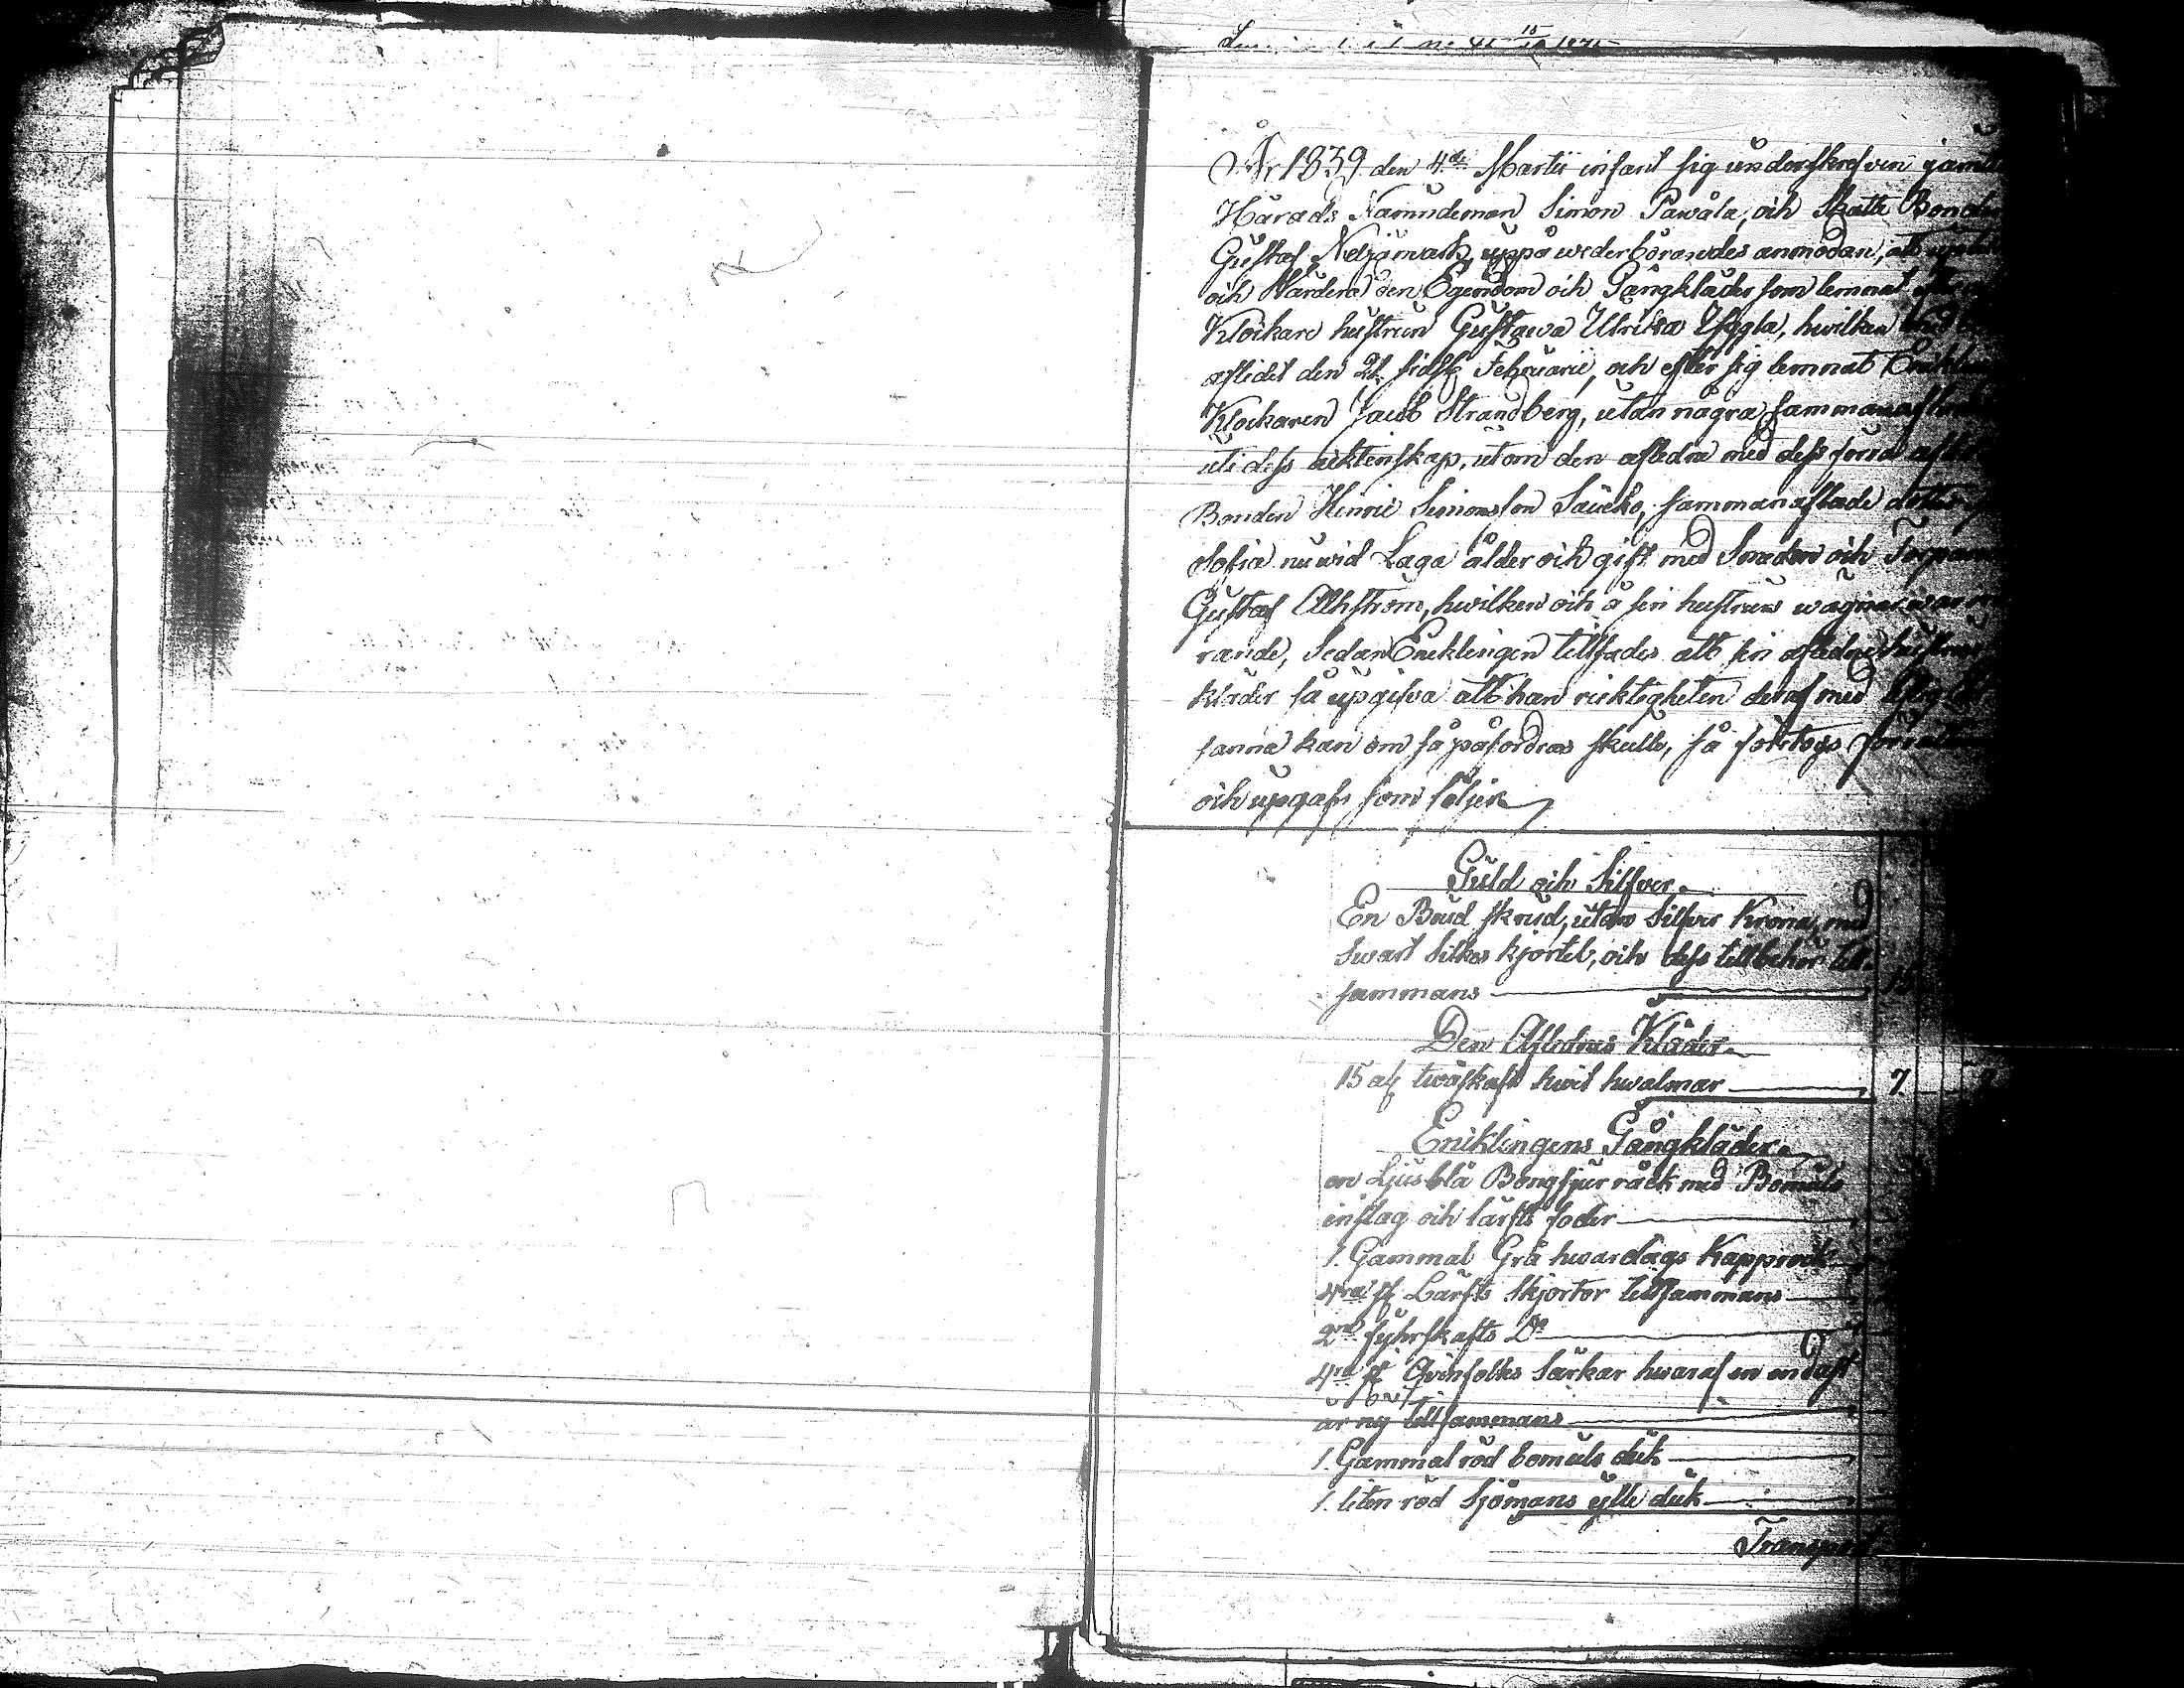 År 1839 den 4de Martii infant sig underskrefven jämte
Härads Nämndeman Simon Pawåla, och Skatte Bonden
Gustaf Neljämark, uppå wederbörandes anmodan, att
och Wärdera den Egendom och Gångkläder som lemnat
Klockare hustrun Gustawa Ulrika Uggla, hwilken
aflidit den 21 sidstl Februarii, och efter sig lemnat Enklingen
Klockaren Jacob Strandberg, utan några sammanaflade
uti dess äktenskap, utom den aflidna med dess förra
Bonden Hinric Simonsson Saucko, sammanaflade dotter
Sofia nu wid Laga ålder och gift med Smeden och Torparen
Gustaf Ahlström, hwilken och å sin hustrus wägnar war
rande, Sedan Encklingen tillsades att sin aflidne hustrus
kläder så upgifva att han ricktigheten deraf med
sanna kan om så påfordras skulle, så företogs
och upgafs som följer
Guld och Silfver.
En Brud skrud, utan Silfver Krona, med
Swart Silkes kjortel, och dess tillbehör till
sammans 15
Den Aflidnas Kläder.
15 al twåskaft hwit hwalmar 7.
Encklingens Gångkläder.
en Ljusblå Bongsjur råck med Bomuls
inslag och lärfts foder
1. Gammal Grå hwardags Kapprock
4ra st Lärfts Skjortor tillsammans
2ne fyhrskafts Do
4ra st Qvinfolks Särkar hwaraf en endast
är ny tillsammans
1. Gammal röd bomuls duk
1. liten röd Sjömans ylle duk
Transport